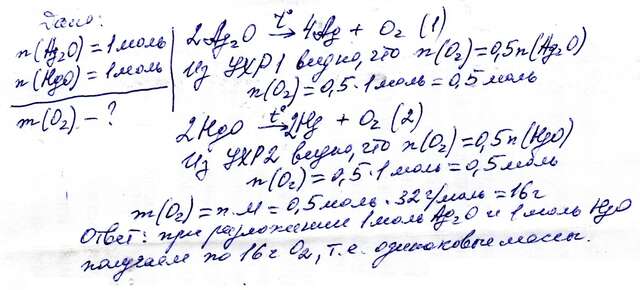 Дано:
n(Ag₂O) = 1 моль
n(HgO) = 1 моль
m(O₂) – ?
2Ag₂O t°→ 4Ag + O₂ (1)
Из УХР1 видно, что n(O₂) = 0,5n(Ag₂O)
n(O₂) = 0,5 · 1 моль = 0,5 моль
2HgO t°→ 2Hg + O₂ (2)
Из УХР2 видно, что n(O₂) = 0,5n(HgO)
n(O₂) = 0,5 · 1 моль = 0,5 моль
m(O₂) = n · M = 0,5 моль · 32 г/моль = 16 г
Ответ: при разложении 1 моль Ag₂O и 1 моль HgO
получаем по 16 г O₂, т.е. одинаковые массы.